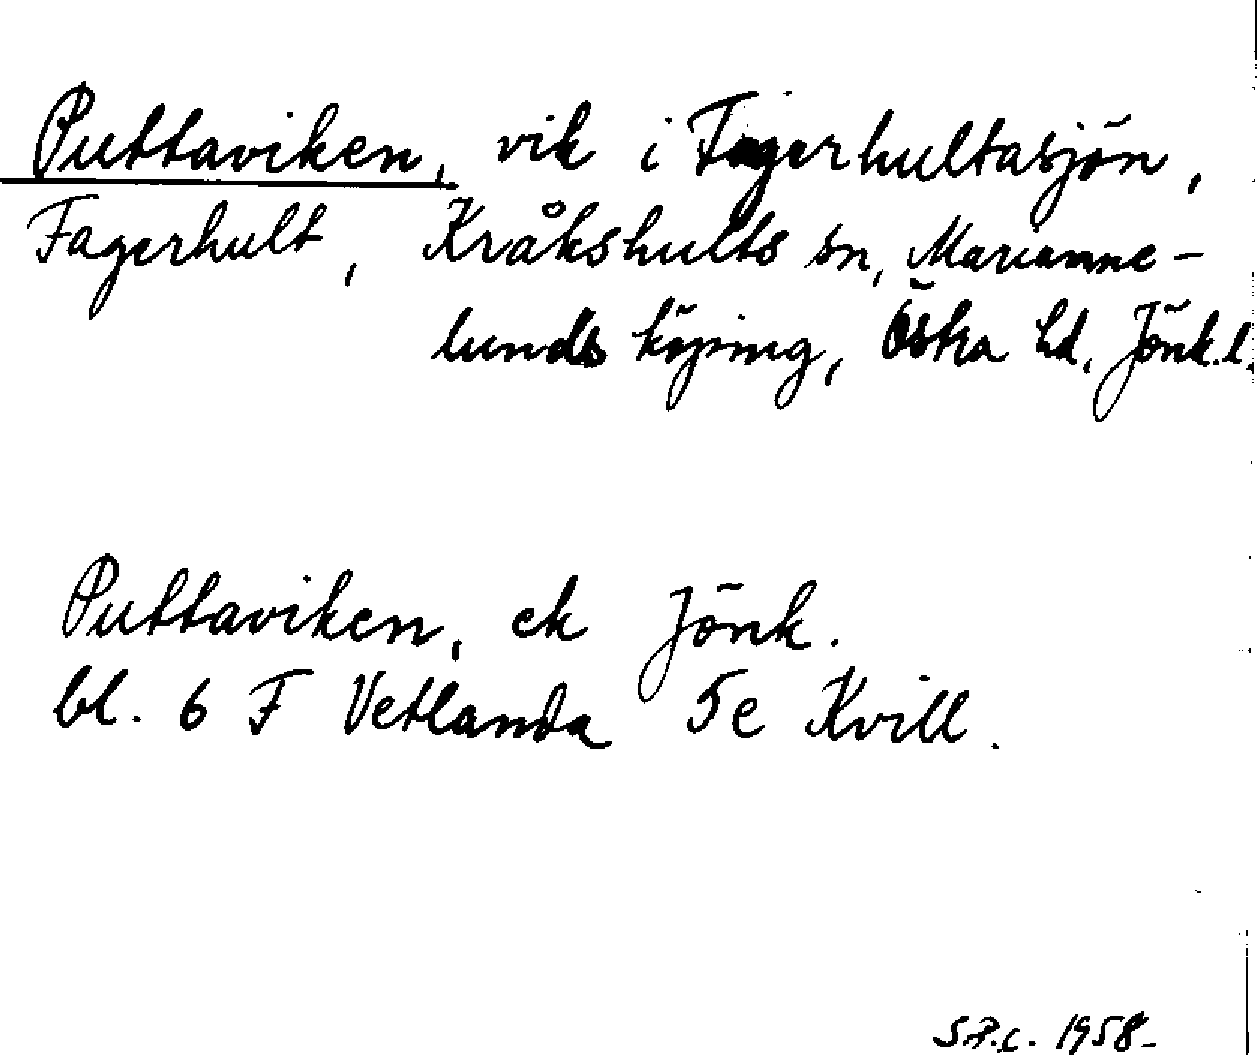 Puttaviken, vik i Fagerhultasjön,
Fagerhult, Kråkshults sn, Marianne-
lunds köping, Östra hd, Jönk.l.
Puttaviken, ek Jönk.
bl. 6 F Vetlanda 5e Kvill.
1958-